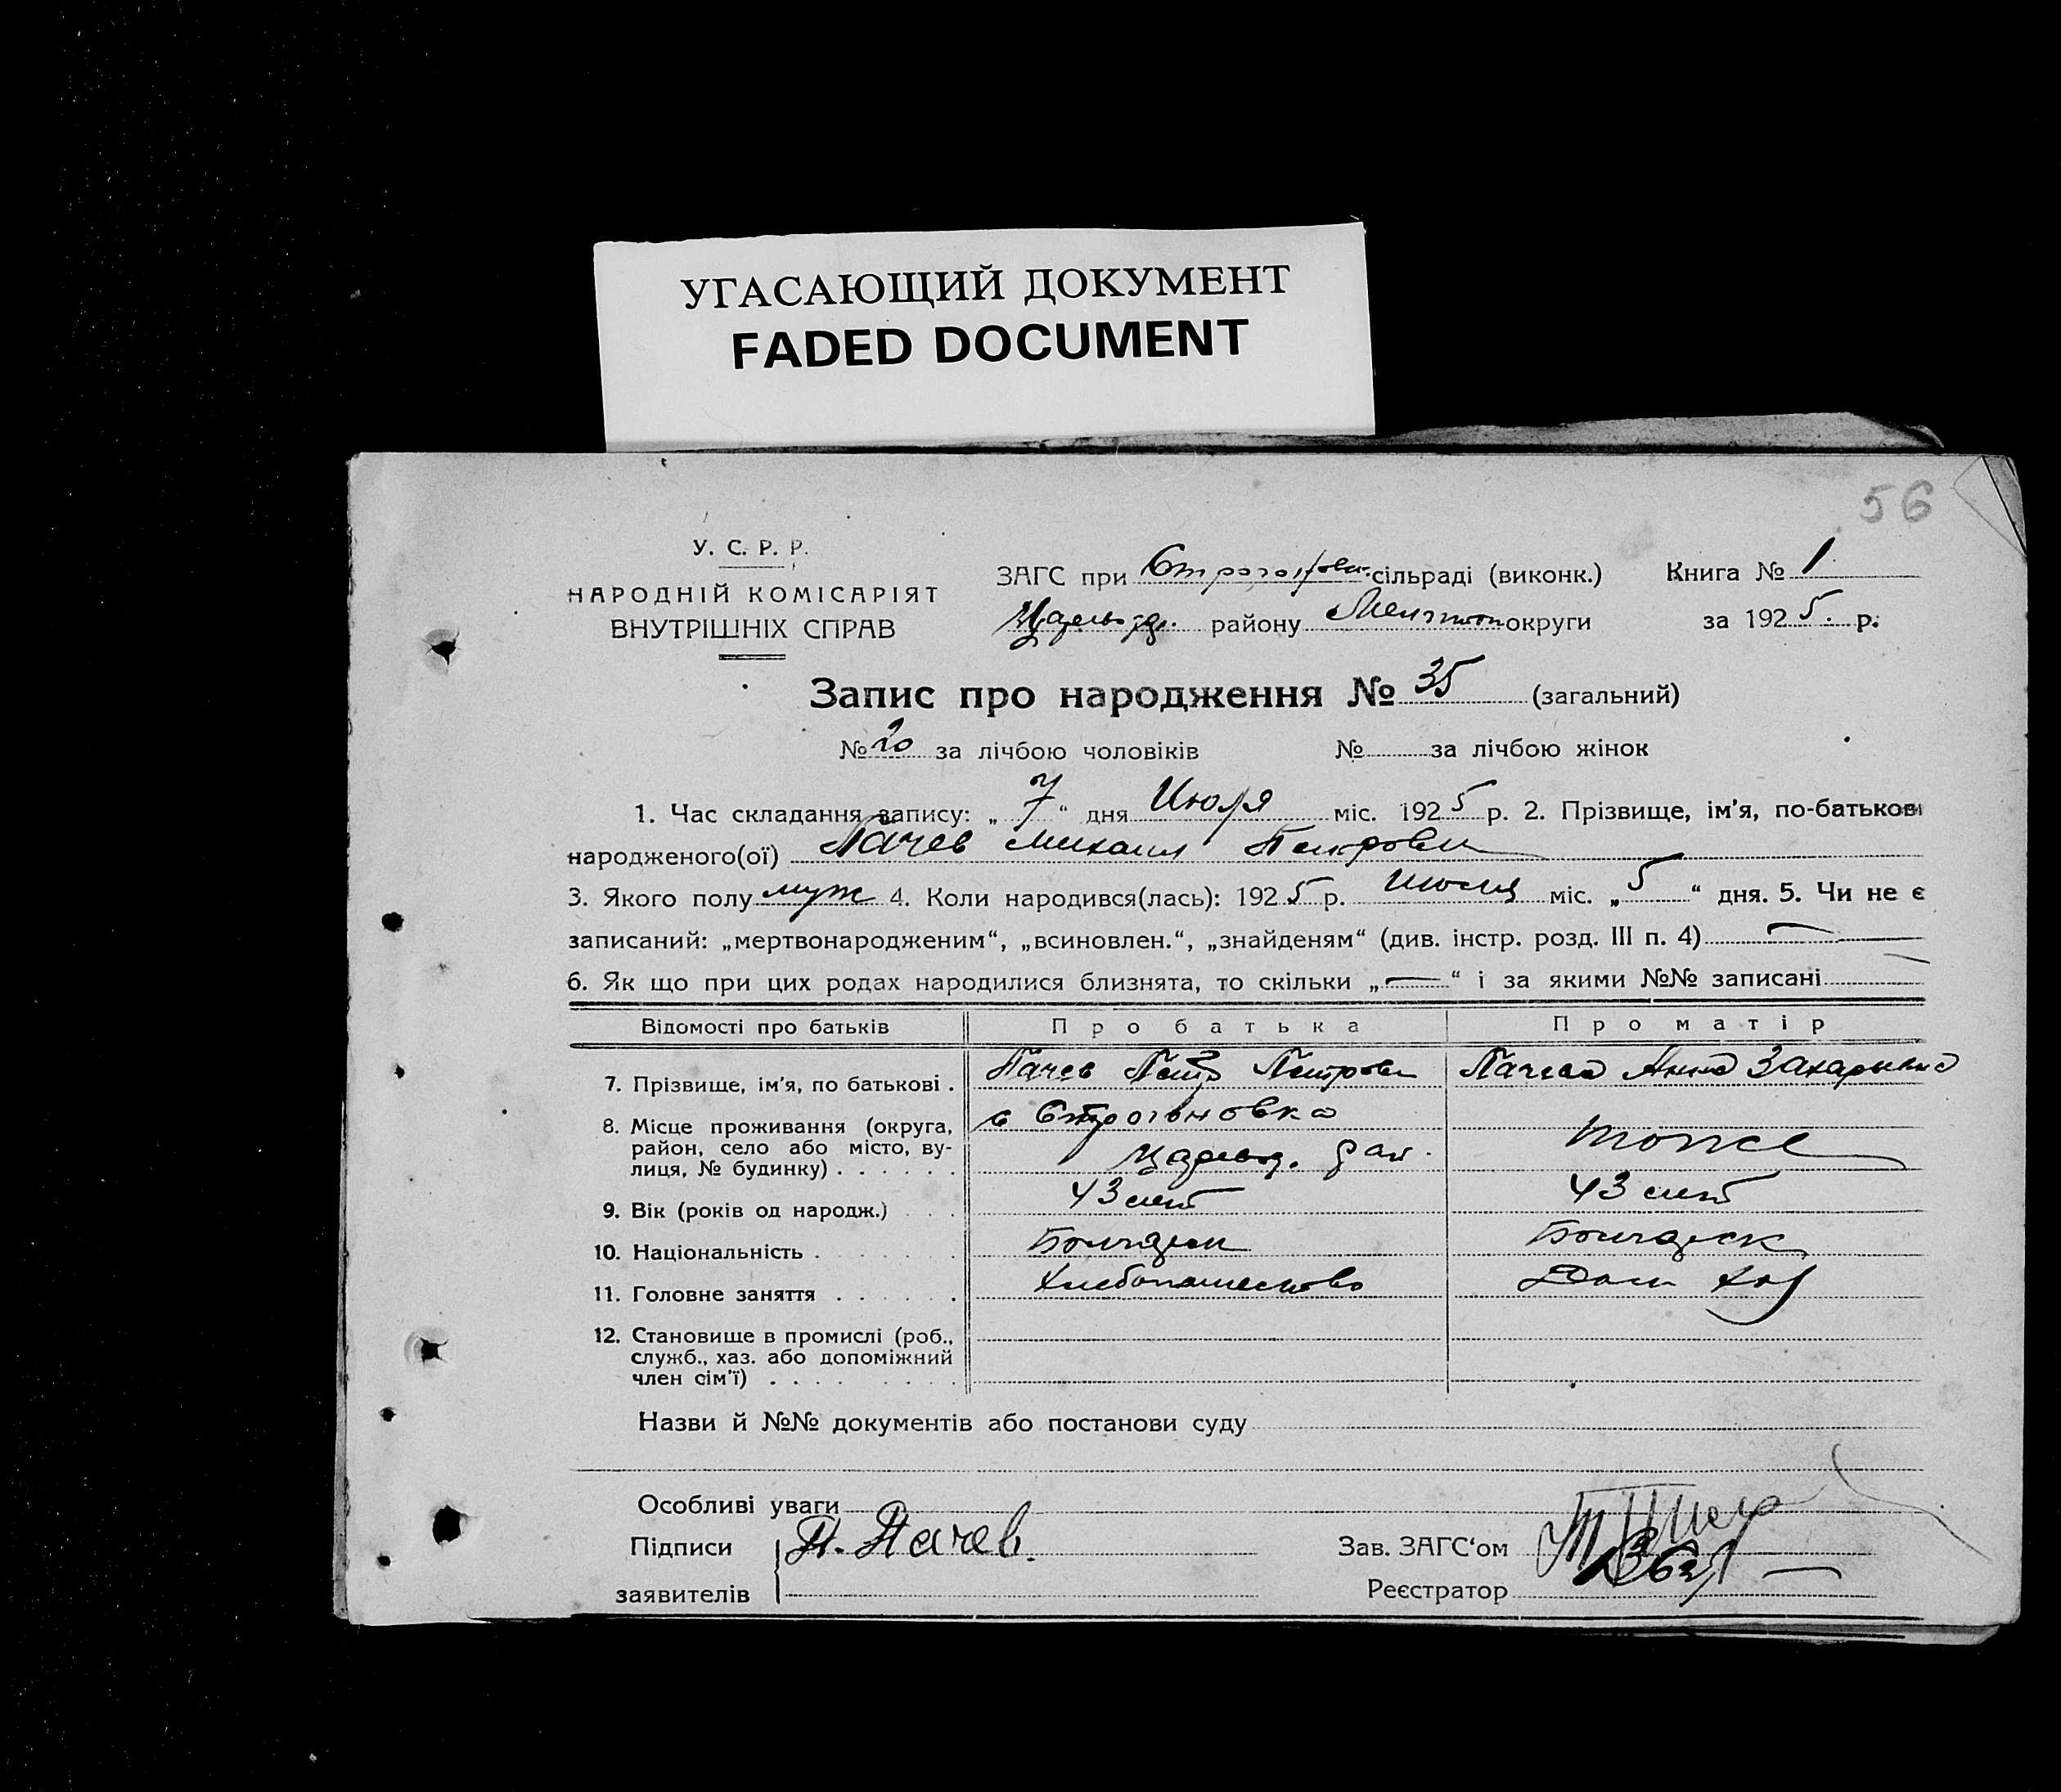 УГАСАЮЩИЙ ДОКУМЕНТ
FADED DOCUMENT
56
У. С. Р. Р.
НАРОДНІЙ КОМІСАРІЯТ
ВНУТРІШНІХ СПРАВ
ЗАГС при Строгонови. сільраді (виконк.) Книга № 1
району Мелитоп округи за 1925. р.
Запис про народження № 35 (загальний)
№ 20 за лічбою чоловіків № за лічбою жінок
1. Час складання запису: „7“ дня Июля міс. 1925 р. 2. Прізвище, ім'я, по-батькові
народженого(ої) Пачев Михаил Петрови
3. Якого полу муж 4. Коли народився(лась): 1925 р. Июля міс. „5“ дня. 5. Чи не є
записаний: „мертвонародженим“, „всиновлен.“, „знайденям“ (див. інстр. розд. III п. 4)
6. Як що при цих родах народилися близнята, то скільки „—“ і за якими №№ записані
Відомості про батьків Про батька Про матір
7. Прізвище, ім'я, по батькові . Пачев Петр Петрови Пачева Анна Захарьевна
8. Місце проживання (округа, с Строгоновка
район, село або місто, ву-
лиця, № будинку) . . . . . . рай. тоже
9. Вік (років од народж.) . . . 43 лет 43 лет
10. Національність . . . . . . Болгарин Болгарск
11. Головне заняття . . . . . . Хлебопашество Дом хоз
12. Становище в промислі (роб.,
служб., хаз. або допоміжний
член сім'ї) . . . . . . . .
Назви й №№ документів або постанови суду
Особливі уваги
Підписи П. Пачев. Зав. ЗАГС‘ом
заявителів Реєстратор